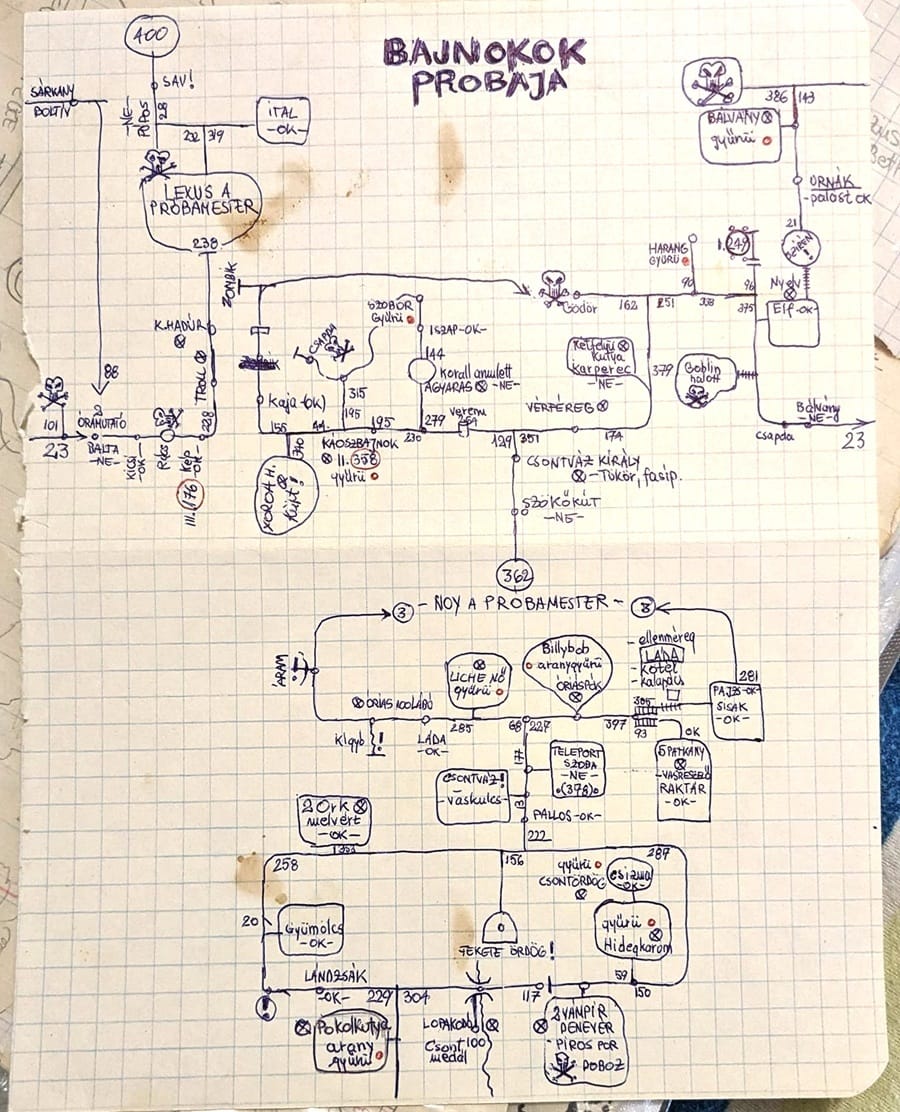 BAJNOKOK
PRÓBÁJA
400
SAV!
SÁRKÁNY
BOLTÍV
28
-NE-
232
319
ITAL
-OK-
LEXUS A
PRÓBAMESTER
238
386
143
BÁLVÁNY
gyűrű
URNÁK
-palást OK
21
SZIRÉN!
Nyelv
Elf -OK-
HARANG
GYŰRŰ
96
I. 249
96
375
ZOMBIK
Gödör
162
251
338
SZOBOR
gyűrű
ISZAP -OK-
144
Korall amulett
AGYARAS -NE-
CSAPDA
315
195
Kétfejű
Kutya
Karperec
-NE-
379
Goblin
halott
K.HADÚR
TROLL
88
101
23
2
ÓRAMUTATÓ
BALTA
-NE-
Kicsi
-OK-
Kép
-OK-
III. 176
228
Kaja (ok)
155
195
230
279
Verem
264
VÉRFÉREG
174
KÁOSZBAJNOK
II. 358
gyűrű
340
129
351
CSONTVÁZ KIRÁLY
-Tükör, fasíp.
SZÖKŐKÚT
-NE-
csapda
Bálvány
-NE-
23
362
3
- NOY A PRÓBAMESTER -
8
ÁRAM
ÓRIÁS 100LÁBÚ
Kígyó
!
LÁDA
-OK-
LICHE NŐ
gyűrű
285
Billybob
aranygyűrű
ÓRIÁSPÓK
68
227
- ellenméreg
LÁDA
- kötél
- kalapács
305
397
93
281
PAJZS -OK-
SISAK
-OK-
OK
5 PATKÁNY
-VASRESZELŐ
RAKTÁR
-OK-
17
TELEPORT
SZOBA
-NE-
(378)
CSONTVÁZ!
-Vaskulcs-
13
PALLOS -OK-
222
2 Ork
mellvért
-OK-
258
156
287
gyűrű
CSONTÖRDÖG
csizma
-OK-
20
Gyümölcs
-OK-
FEKETE ÖRDÖG!
gyűrű
Hidegkarom
LÁNDZSÁK
-OK-
229
304
117
59
150
!
Pokolkutya
arany
gyűrű
LOPAKODÓ
100
Csont
medál
3 VÁMPÍR
DENEVÉR
- PIROS POR
DOBOZ